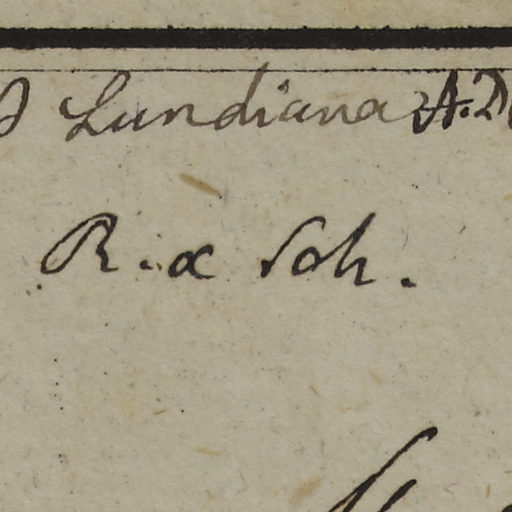 Lundiana A.D
R. & Sch.